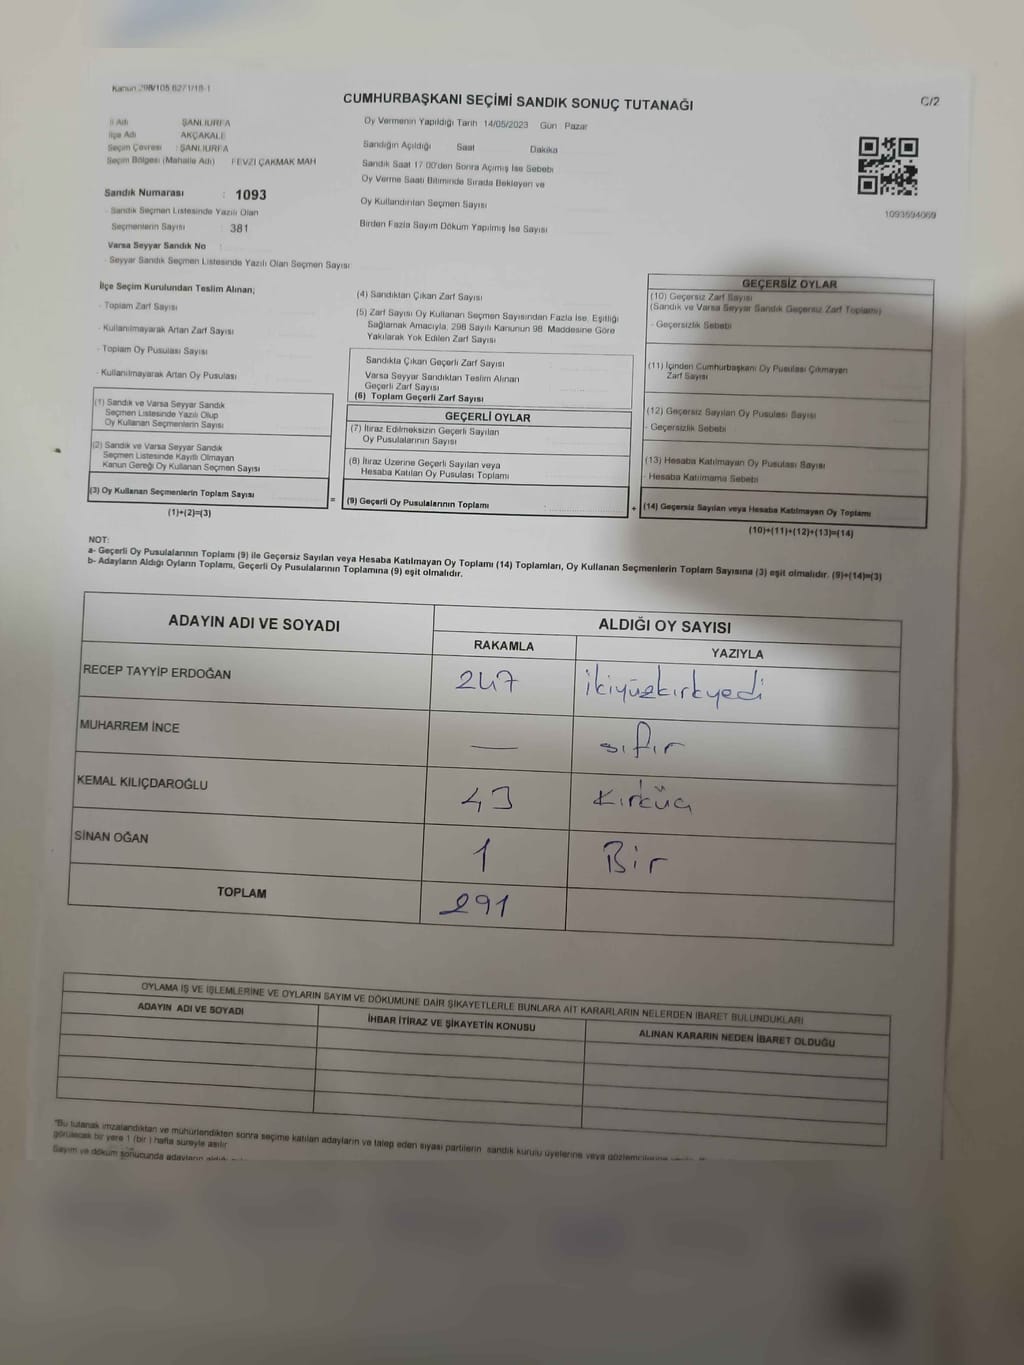 Kanun 298/105.6271/18-1
CUMHURBAŞKANI SEÇİMİ SANDIK SONUÇ TUTANAĞI
C/2
İl Adı ŞANLIURFA
İlçe Adı AKÇAKALE
Seçim Çevresi : ŞANLIURFA
Seçim Bölgesi (Mahalle Adı) FEVZİ ÇAKMAK MAH
Sandık Numarası : 1093
- Sandık Seçmen Listesinde Yazılı Olan
Seçmenlerin Sayısı : 381
Varsa Seyyar Sandık No :
- Seyyar Sandık Seçmen Listesinde Yazılı Olan Seçmen Sayısı
Oy Vermenin Yapıldığı Tarih 14/05/2023 Gün Pazar
Sandığın Açıldığı Saat Dakika
Sandık Saat 17:00'den Sonra Açılmış İse Sebebi
Oy Verme Saati Bitiminde Sırada Bekleyen ve
Oy Kullandırılan Seçmen Sayısı
Birden Fazla Sayım Döküm Yapılmış İse Sayısı
1093594069
İlçe Seçim Kurulundan Teslim Alınan;
- Toplam Zarf Sayısı
- Kullanılmayarak Artan Zarf Sayısı
- Toplam Oy Pusulası Sayısı
- Kullanılmayarak Artan Oy Pusulası
(1) Sandık ve Varsa Seyyar Sandık
Seçmen Listesinde Yazılı Olup
Oy Kullanan Seçmenlerin Sayısı
(2) Sandık ve Varsa Seyyar Sandık
Seçmen Listesinde Kayıtlı Olmayan
Kanun Gereği Oy Kullanan Seçmen Sayısı
(3) Oy Kullanan Seçmenlerin Toplam Sayısı
(1)+(2)=(3)
=
(4) Sandıktan Çıkan Zarf Sayısı
(5) Zarf Sayısı Oy Kullanan Seçmen Sayısından Fazla İse, Eşitliği
Sağlamak Amacıyla, 298 Sayılı Kanunun 98. Maddesine Göre
Yakılarak Yok Edilen Zarf Sayısı
Sandıkta Çıkan Geçerli Zarf Sayısı
Varsa Seyyar Sandıktan Teslim Alınan
Geçerli Zarf Sayısı
(6) Toplam Geçerli Zarf Sayısı
GEÇERLİ OYLAR
(7) İtiraz Edilmeksizin Geçerli Sayılan
Oy Pusulalarının Sayısı
(8) İtiraz Üzerine Geçerli Sayılan veya
Hesaba Katılan Oy Pusulası Toplamı
(9) Geçerli Oy Pusulalarının Toplamı
+
GEÇERSİZ OYLAR
(10) Geçersiz Zarf Sayısı
(Sandık ve Varsa Seyyar Sandık Geçersiz Zarf Toplamı)
- Geçersizlik Sebebi
(11) İçinden Cumhurbaşkanı Oy Pusulası Çıkmayan
Zarf Sayısı
(12) Geçersiz Sayılan Oy Pusulası Sayısı
- Geçersizlik Sebebi
(13) Hesaba Katılmayan Oy Pusulası Sayısı
- Hesaba Katılmama Sebebi
(14) Geçersiz Sayılan veya Hesaba Katılmayan Oy Toplamı
(10)+(11)+(12)+(13)=(14)
NOT:
a- Geçerli Oy Pusulalarının Toplamı (9) ile Geçersiz Sayılan veya Hesaba Katılmayan Oy Toplamı (14) Toplamları, Oy Kullanan Seçmenlerin Toplam Sayısına (3) eşit olmalıdır. (9)+(14)=(3)
b- Adayların Aldığı Oyların Toplamı, Geçerli Oy Pusulalarının Toplamına (9) eşit olmalıdır.
ADAYIN ADI VE SOYADI
ALDIĞI OY SAYISI
RAKAMLA YAZIYLA
RECEP TAYYİP ERDOĞAN 247 ikiyüzkırkyedi
MUHARREM İNCE — sıfır
KEMAL KILIÇDAROĞLU 43 Kırküç
SİNAN OĞAN 1 Bir
TOPLAM 291
OYLAMA İŞ VE İŞLEMLERİNE VE OYLARIN SAYIM VE DÖKÜMÜNE DAİR ŞİKAYETLERLE BUNLARA AİT KARARLARIN NELERDEN İBARET BULUNDUKLARI
ADAYIN ADI VE SOYADI İHBAR İTİRAZ VE ŞİKAYETİN KONUSU ALINAN KARARIN NEDEN İBARET OLDUĞU
"Bu tutanak imzalandıktan ve mühürlendikten sonra seçime katılan adayların ve talep eden siyasi partilerin sandık kurulu üyelerine veya gözlemcilerine
görülecek bir yere 1 (bir) hafta süreyle asılır.
Sayım ve döküm sonucunda adayların